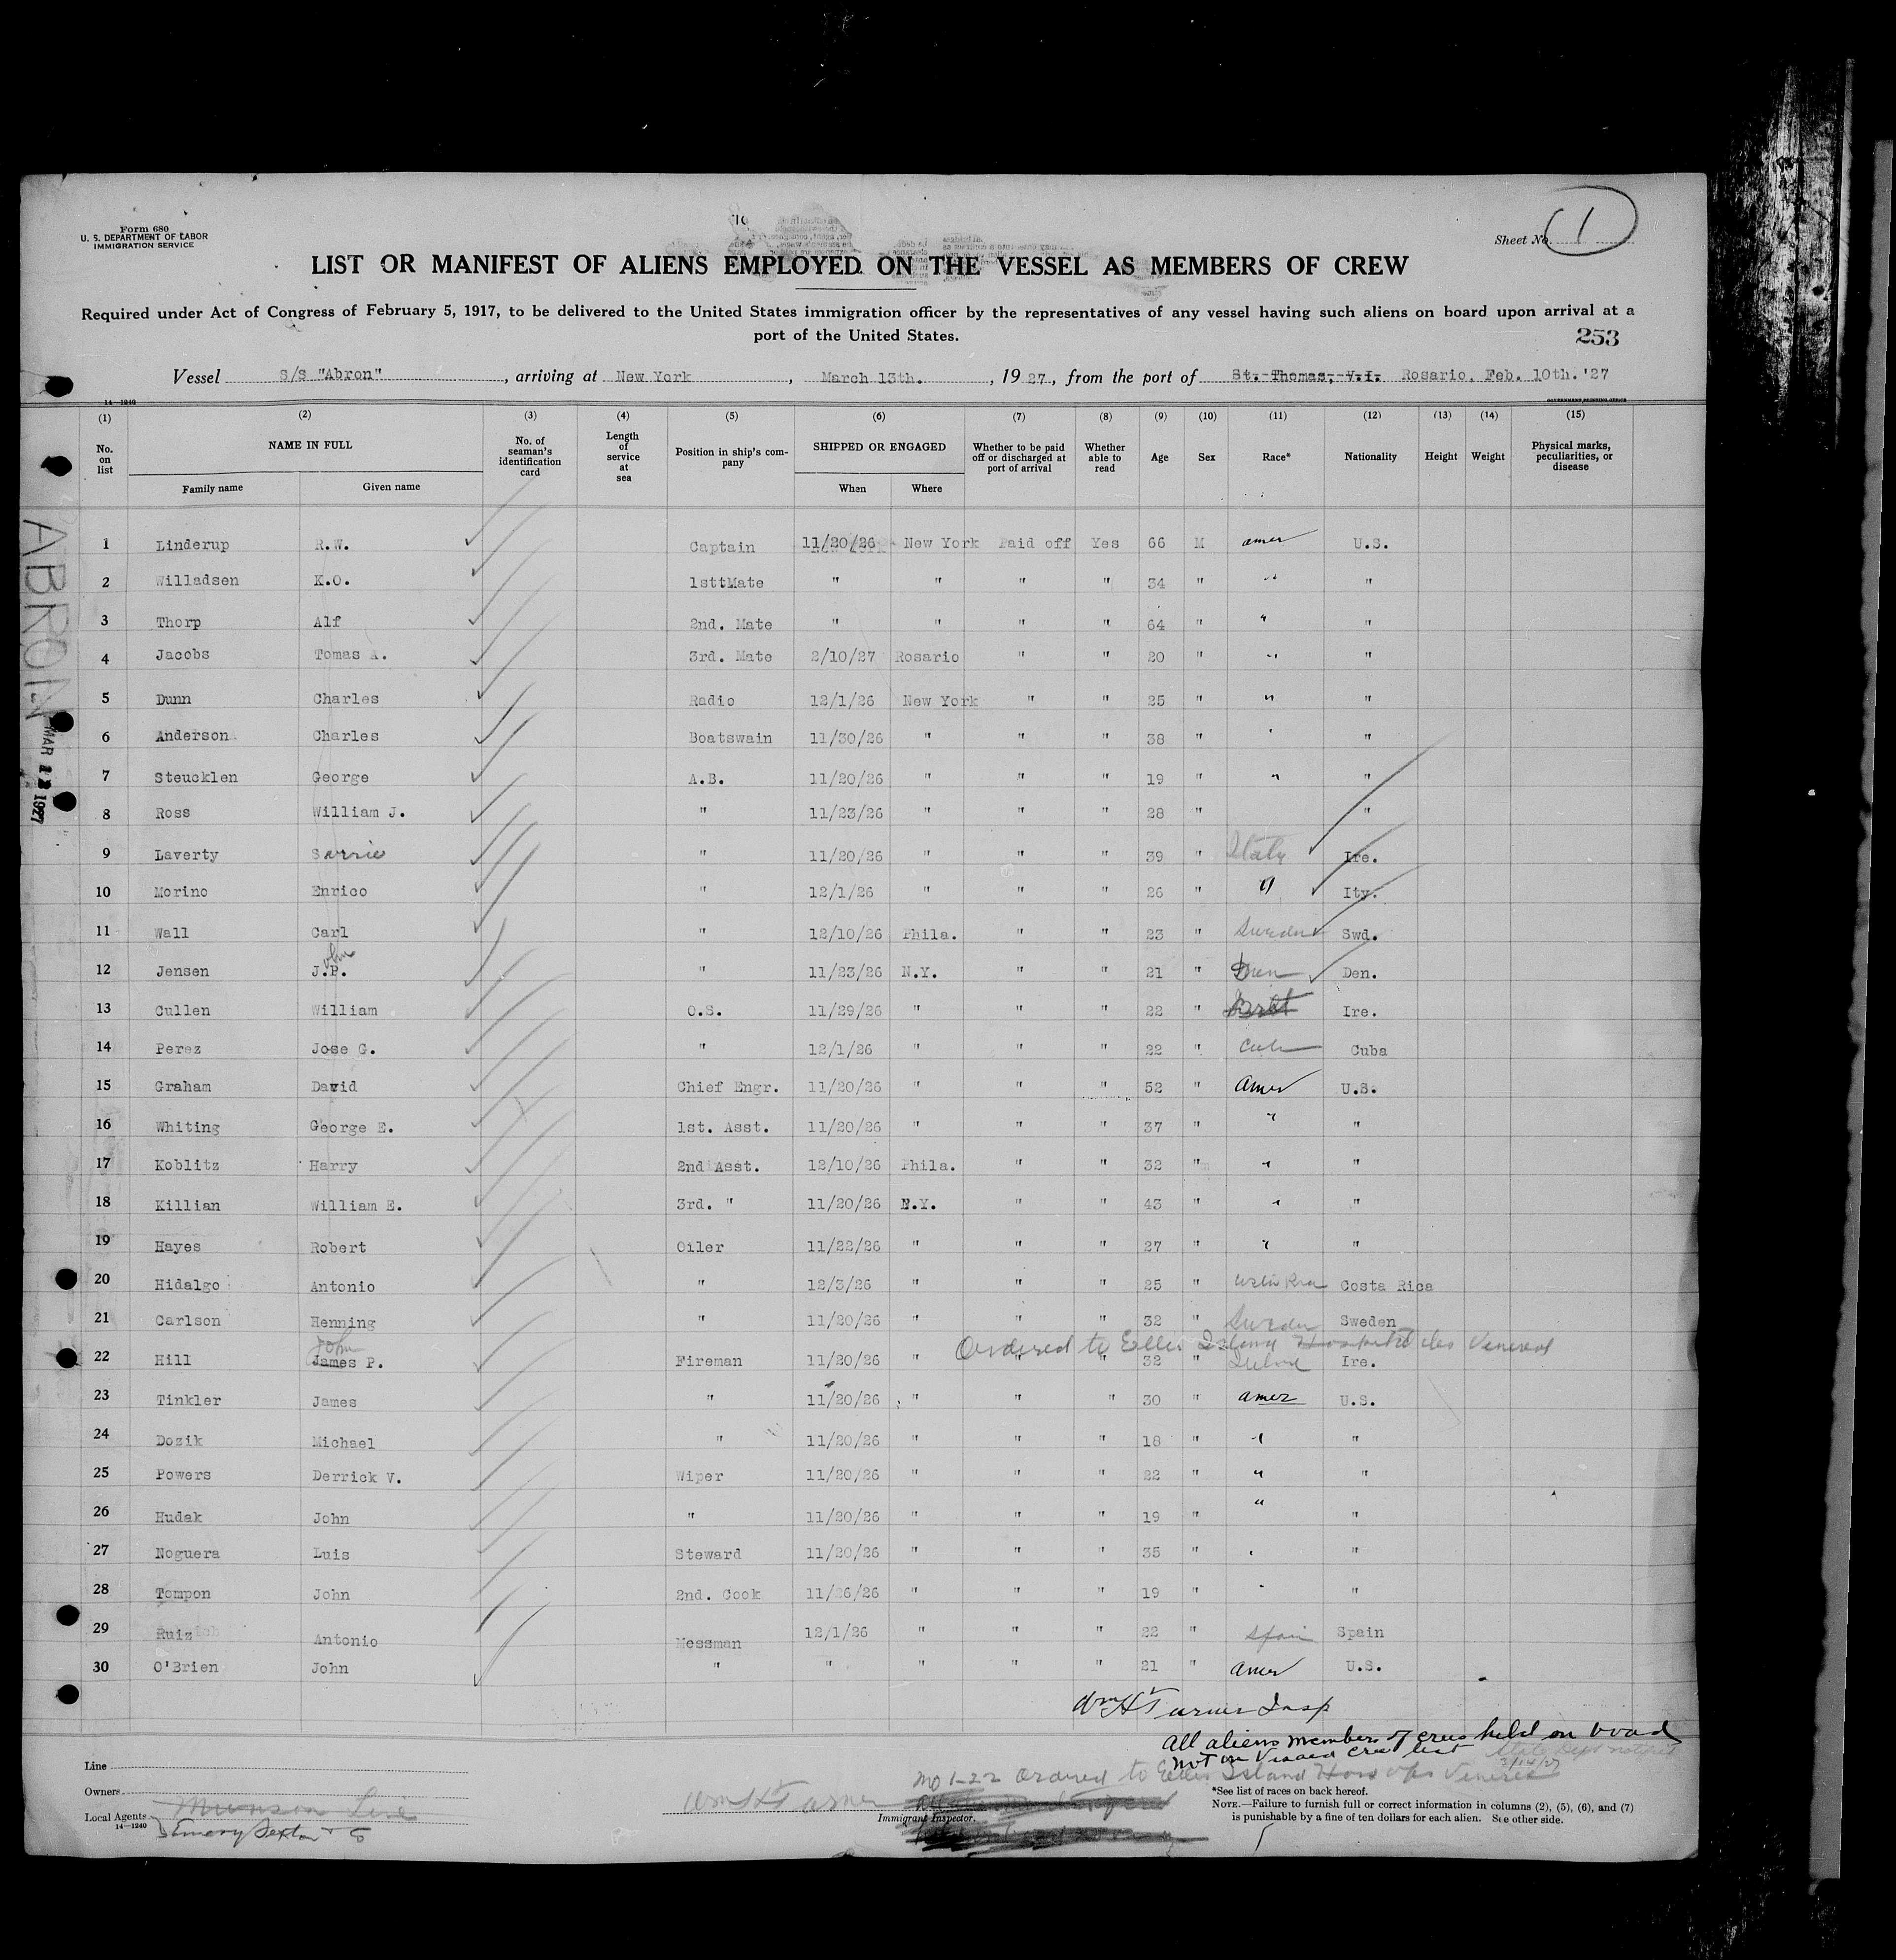 Form 680
U. S. DEPARTMENT OF LABOR
IMMIGRATION SERVICE
Sheet No. 1
LIST OR MANIFEST OF ALIENS EMPLOYED ON THE VESSEL AS MEMBERS OF CREW
Required under Act of Congress of February 5, 1917, to be delivered to the United States immigration officer by the representatives of any vessel having such aliens on board upon arrival at a
port of the United States.
253
Vessel S/S "Abron", arriving at New York, March 13th., 1927, from the port of St. Thomas, V.I. Rosario, Feb. 10th. '27
14—1240 GOVERNMENT PRINTING OFFICE
(1) (2) (3) (4) (5) (6) (7) (8) (9) (10) (11) (12) (13) (14) (15)
No. on list NAME IN FULL No. of seaman's identification card Length of service at sea Position in ship's company SHIPPED OR ENGAGED Whether to be paid off or discharged at port of arrival Whether able to read Age Sex Race* Nationality Height Weight Physical marks, peculiarities, or disease
Family name Given name When Where
ABRON
MAR 13 1927
1 Linderup R.W. Captain 11/20/26 New York Paid off Yes 66 M amer U.S.
2 Willadsen K.O. 1sttMate " " " " 34 " " "
3 Thorp Alf 2nd. Mate " " " " 64 " " "
4 Jacobs Tomas A. 3rd. Mate 2/10/27 Rosario " " 20 " " "
5 Dunn Charles Radio 12/1/26 New York " " 25 " " "
6 Anderson Charles Boatswain 11/30/26 " " " 38 " " "
7 Steucklen George A.B. 11/20/26 " " " 19 " " "
8 Ross William J. " 11/23/26 " " " 28 " "
9 Laverty " 11/20/26 " " " 39 " Italy Ire.
10 Morino Enrico " 12/1/26 " " " 26 " " Ity.
11 Wall Carl " 12/10/26 Phila. " " 23 " Sweden Swd.
12 Jensen J.P. John " 11/23/26 N.Y. " " 21 " Den Den.
13 Cullen William O.S. 11/29/26 " " " 22 " Ire.
14 Perez Jose G. " 12/1/26 " " " 22 " Cub Cuba
15 Graham David Chief Engr. 11/20/26 " " " 52 " Amer U.S.
16 Whiting George E. 1st. Asst. 11/20/26 " " " 37 " " "
17 Koblitz Harry 2nd Asst. 12/10/26 Phila. " " 32 " " "
18 Killian William E. 3rd. " 11/20/26 N.Y. " " 43 " " "
19 Hayes Robert Oiler 11/22/26 " " " 27 " " "
20 Hidalgo Antonio " 12/3/26 " " " 25 " Costa Rica
21 Carlson Henning " 11/20/26 " " " 32 " Sweden Sweden
Ordered to Ellis Island Hospital Venereal
22 Hill John James P. Fireman 11/20/26 " " " 32 " Ireland Ire.
23 Tinkler James " 11/20/26 " " " 30 " amer U.S.
24 Dozik Michael " 11/20/26 " " " 18 " " "
25 Powers Derrick V. Wiper 11/20/26 " " " 22 " " "
26 Hudak John " 11/20/26 " " " 19 " " "
27 Noguera Luis Steward 11/20/26 " " " 35 " " "
28 Tompon John 2nd. Cook 11/26/26 " " " 19 " " "
29 Ruiz Antonio Messman 12/1/26 " " " 22 " Spain Spain
30 O'Brien John " " " " " 21 " amer U.S.
Wm H Turner Insp
All aliens members of crew held on board
not on Visaed crew list State Dept notified
3/14/27
No 1-22 Ordered to Ellis Island Hosp Venereal
Line
Owners Munson Line
Local Agents
14—1240
Wm H Turner
Immigrant Inspector.
*See list of races on back hereof.
NOTE.—Failure to furnish full or correct information in columns (2), (5), (6), and (7)
is punishable by a fine of ten dollars for each alien. See other side.